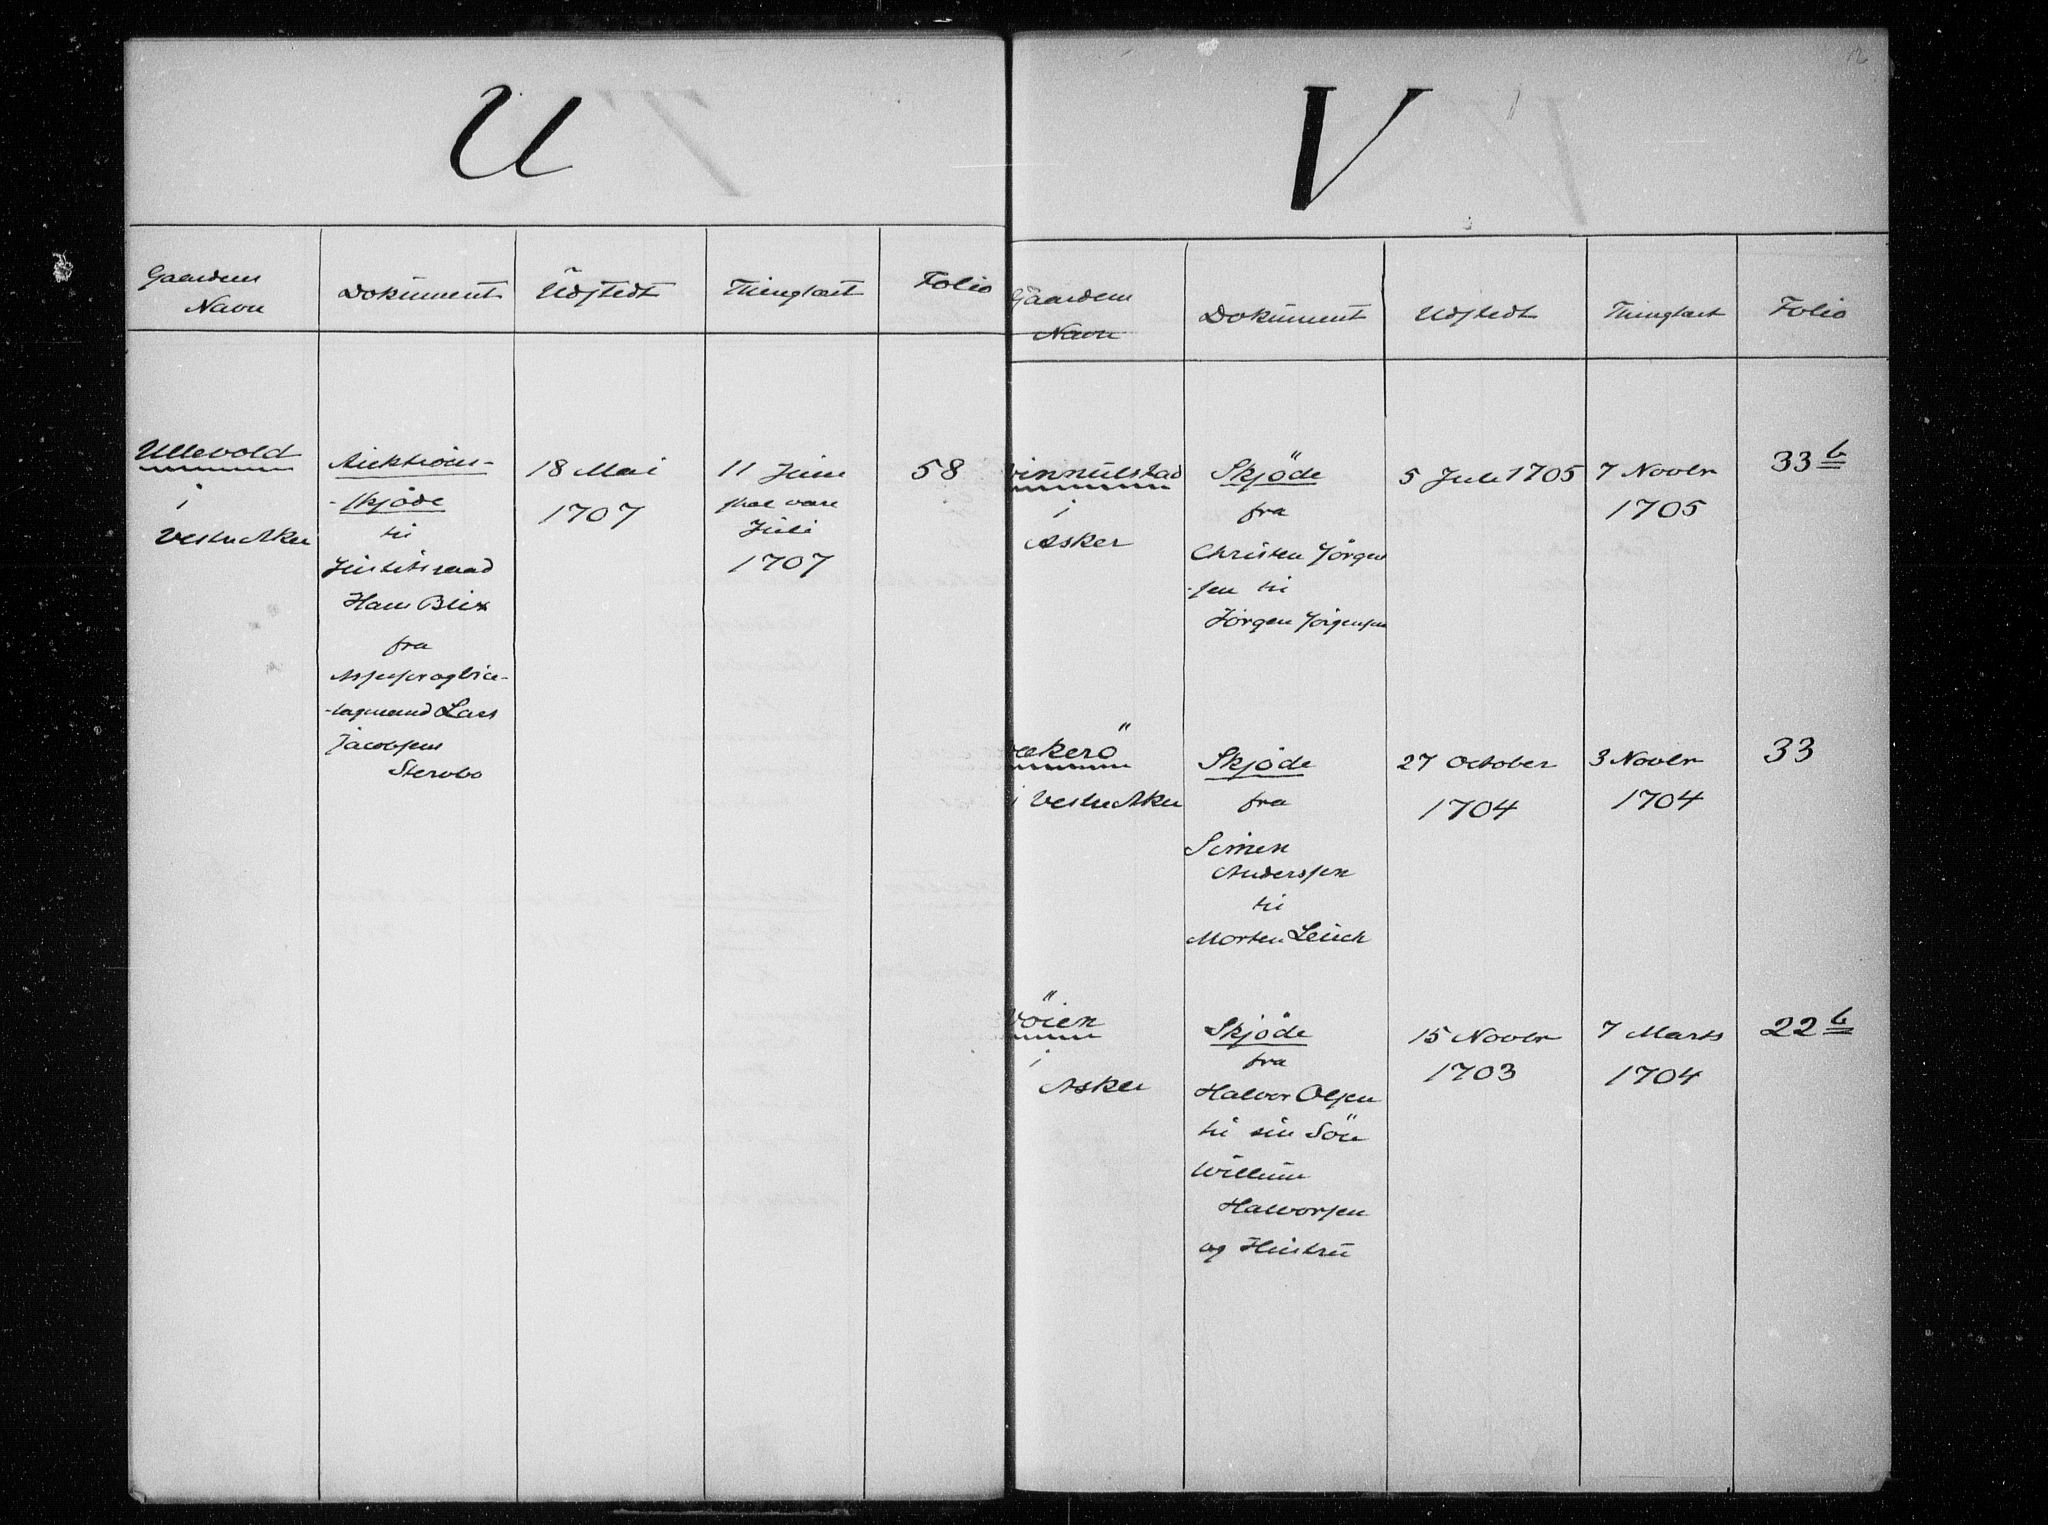 U
Gaardens
Navn
Dokument
Udstedt
Thinglæst
Folio
Ullevold
i
Vestre Aker
Auktions-
-skjøde
til
Justitsraad
Hans Blix
fra
Assessor og Vice-
-lagmand Lars
Jacobsens
Stervbo
18 Mai
1707
11 Juni
skal være
Juli
1707
58
V
12
Gaardens
Navn
Dokument
Udstedt
Thinglæst
Folio
Vinnulstad
i
Asker
Skjöde
fra
Christen Jörgen
-sen til
Jörgen Jörgensen
5 Juli 1705
7 Novbr
1705
33 b
Vækerö
i Vestre Aker
Skjöde
fra
Simen
Anderssen
til
Morten Leuch
27 October
1704
3 Novbr
1704
33
Vöien
i
Asker
Skjöde
fra
Halvor Olsen
til sin Sön
Willum
Halvorsen
og Hustru
15 Novbr
1703
7 Marts
1704
22 b